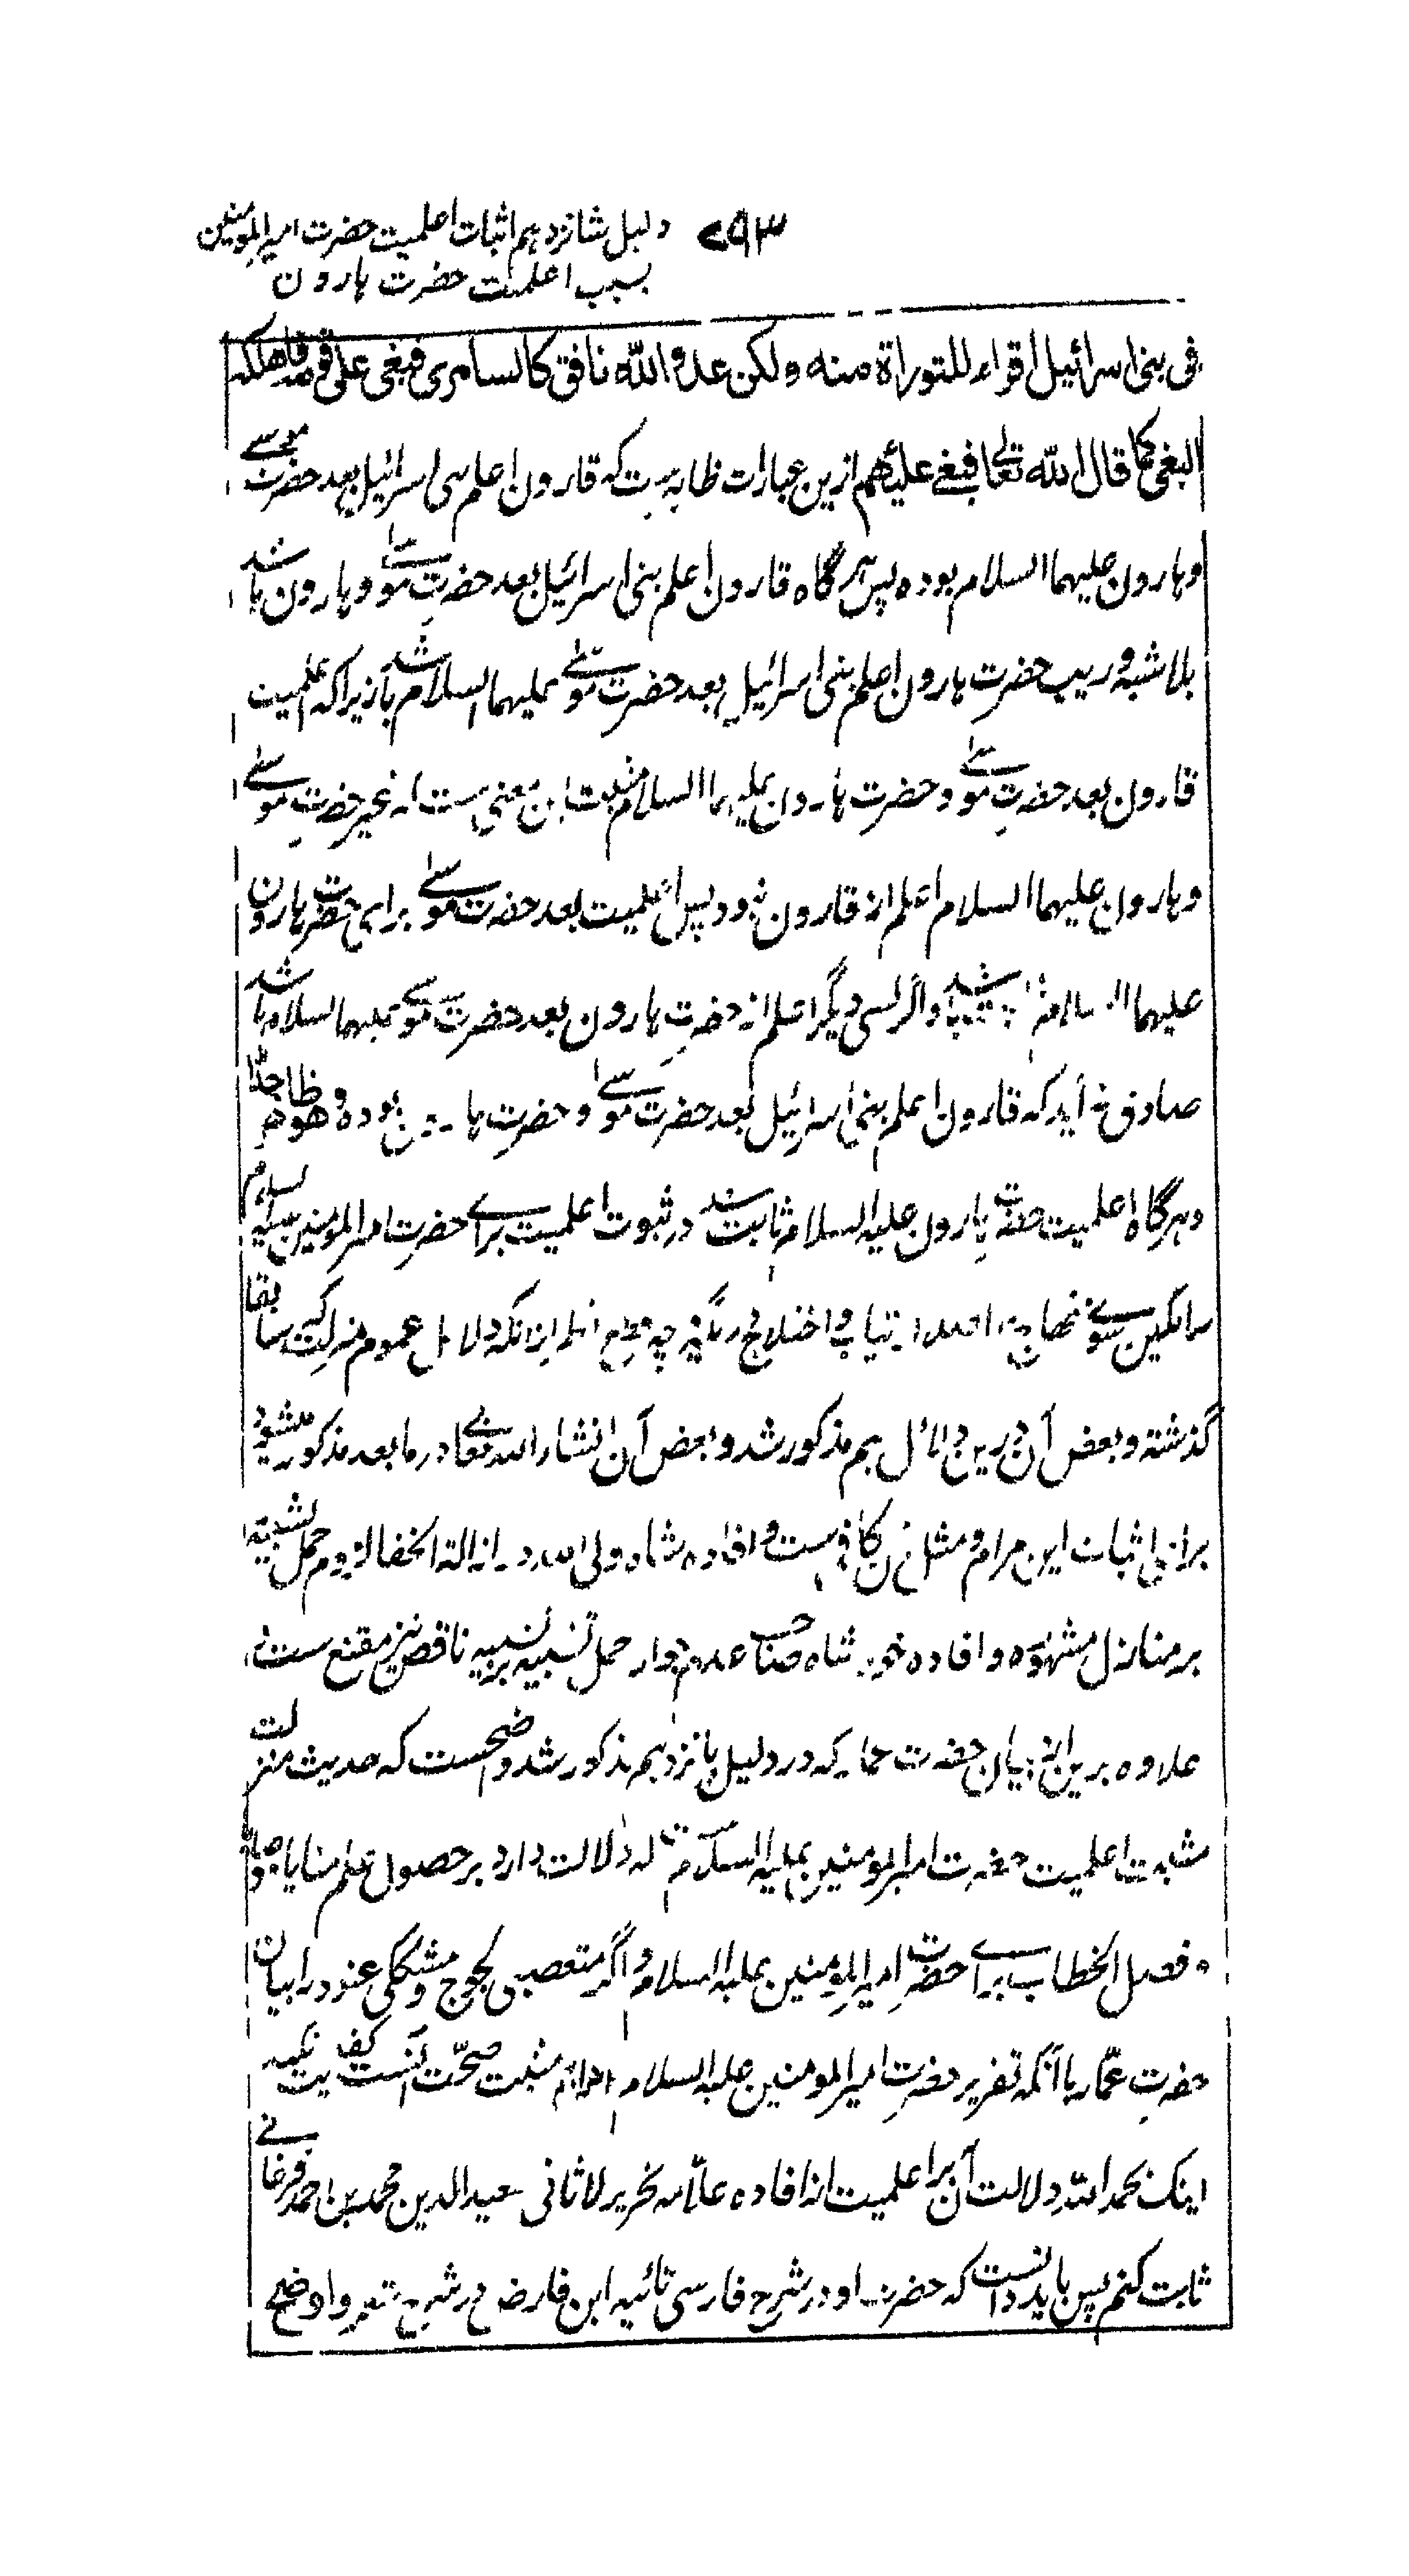 ۷۹۳ دلیل شانزدهم اثبات اعلمیت حضرت امیرالمومنین
بسبب اعلمیت حضرت هارون
فی بنی اسرائیل اقراء للتوراة منه ولکن عدو الله نافق کالسامری فبغی علی قومه فاهلکه
البغی کما قال الله تعالی فبغی علیهم ازین عبارات ظاهرست که قارون اعلم بنی اسرائیل بعد حضرت موسے
وهارون علیهما السلام بوده پس هرگاه قارون اعلم بنی اسرائیل بعد حضرت موسے وهارون باشد
بلا شبه و ریب حضرت هارون اعلم بنی اسرائیل بعد حضرت موسے علیهما السلام باشد زیرا که اعلمیت
قارون بعد حضرت موسے و حضرت هارون علیهما السلام مثبت این معنی ست که غیر حضرت موسے
وهارون علیهما السلام اعلم از قارون نبود پس اعلمیت بعد حضرت موسے برای حضرت هارون
علیهما السلام باشد و اگر کسی دیگر اعلم از حضرت هارون بعد حضرت موسے علیهما السلام باشد
صادق نه آید که قارون اعلم بنی اسرائیل بعد حضرت موسے و حضرت هارون بوده وهو ظاهر جدا
وهرگاه اعلمیت حضرت هارون علیه السلام ثابت شد در ثبوت اعلمیت براے حضرت امیرالمومنین علیه السلام
سالکین سوے ارتیاب و اختلاج چه قطع نظر ازانکه دلائل عموم منزلت سابقا
گذشته و بعض آن درین دلائل هم مذکور شد و بعض آن انشاء الله تعالے در ما بعد مذکور میشود
برای اثبات این مرام و مثل آن کافی ست و افاده شاه ولی الله در ازالة الخفا لزوم حمل تشبیه
بر منازل مشهوره و افاده خود شاه صاحب عدم جواز حمل تشبیه بر تشبیه ناقص نیز مقنع ست
علاوه برین از بیان حضرت عمار که در دلیل پانزدهم مذکور شد واضحست که حدیث منزلت
مثبت اعلمیت حضرت امیرالمومنین علیه السلام ست که دلالت دارد بر حصول علم منایا و وصایا
و فصل الخطاب براے حضرت امیرالمومنین علیه السلام و اگر متعصبی لجوج و مشککی عنود را بیان
حضرت عمار با آنکه تقریر حضرت امیرالمومنین علیه السلام مثبت صحت آنست کفایت نکند
اینک بحمد الله دلالت آن بر اعلمیت از افاده علامه نحریر لاثانی سعید الدین محمد بن احمد فرغانے
ثابت کنم پس باید دانست که حضرت او در شرح فارسی تائیه ابن فارض در شرح شعر و اوضح